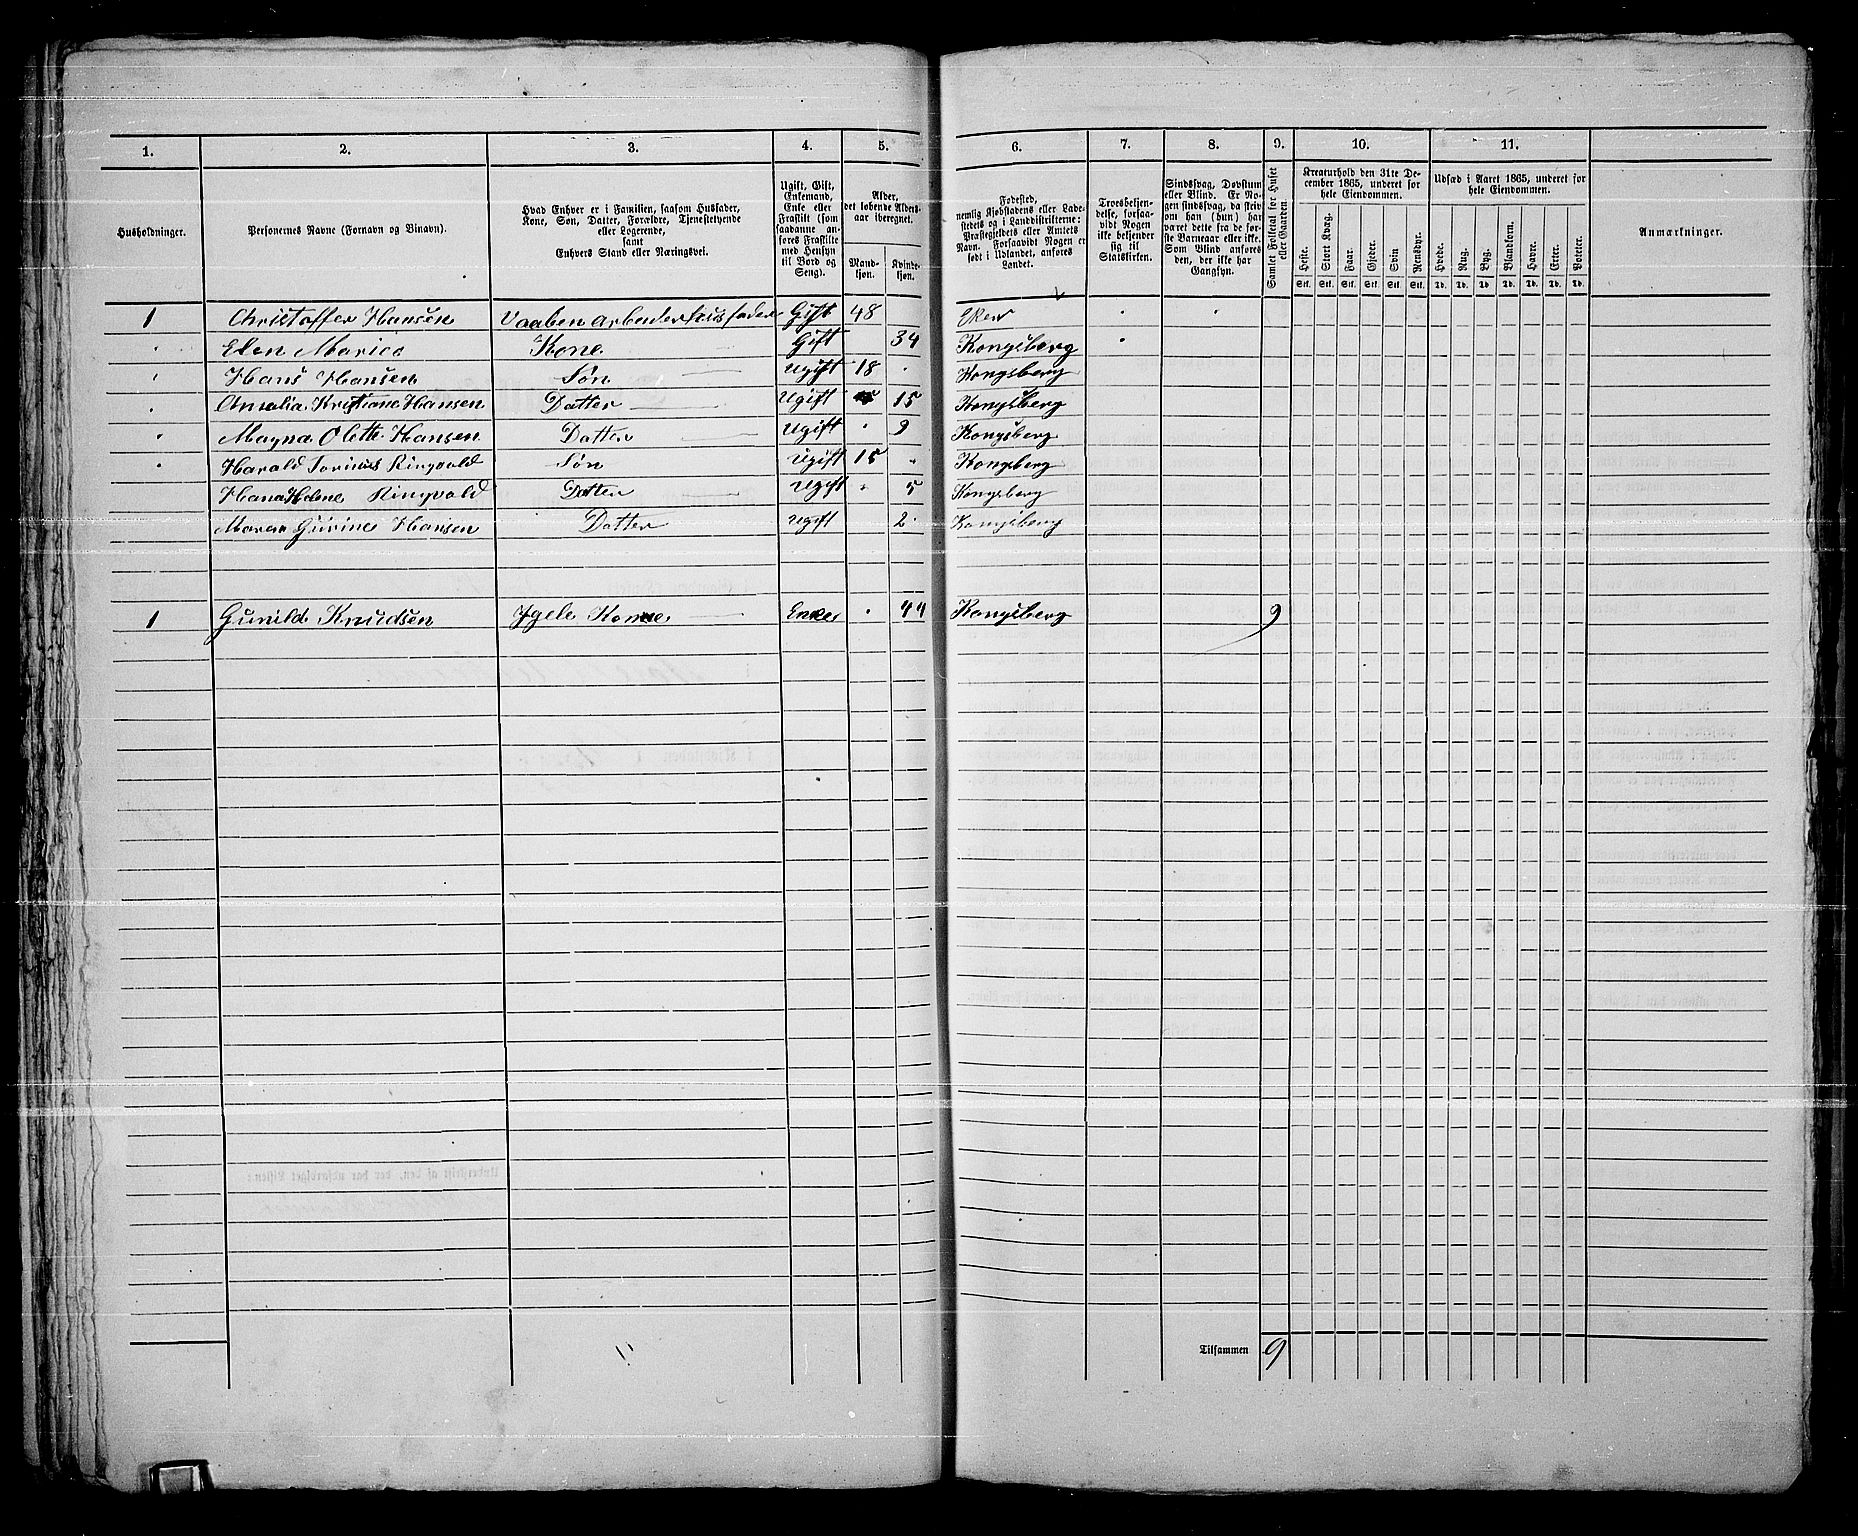 1. 2. 3. 4. 5. 6. 7. 8. 9. 10. 11.
Husholdninger.
Personernes Navne (Fornavn og Binavn).
Hvad Enhver er i Familien, saasom Husfader,
Kone, Søn, Datter, Forældre, Tjenestetyende
eller Logerende,
samt
Enhvers Stand eller Næringsvei.
Ugift, Gift,
Enkemand,
Enke eller
Fraskilt (som
saadanne an-
føres Fraskilte
med Hensyn
til Bord og
Seng).
Alder,
det løbende Alders-
aar iberegnet.
Mand-
kjøn.
Kvinde-
kjøn.
Fødested,
nemlig Kjøbstadens eller Lade-
stedets og i Landdistrikterne:
Præstegjeldets eller Amtets
Navn. Forsaavidt Nogen er
født i Udlandet, anføres
Landet.
Troesbekjen-
delse, forsaa-
vidt Nogen
ikke bekjender
sig til
Statskirken.
Sindssvag, Døvstum
eller Blind. Er No-
gen sindssvag, da skriv
om han (hun) har
været dette fra de før-
ste Barneaar eller ikke.
Som Blind anføres
den, der ikke har
Gangsyn.
Samlet Folketal for Huset
eller Gaarden.
Kreaturhold den 31te De-
cember 1865, underet for
hele Eiendommen.
Heste. Stort Kvæg. Faar. Gjeder. Svin Rensdyr.
Stk. Stk. Stk. Stk. Stk. Stk.
Udsæd i Aaret 1865, underet for
hele Eiendommen.
Hvede. Rug. Byg. Blandkorn. Havre. Erter. Poteter.
Td. Td. Td. Td. Td. Td. Td.
Anmærkninger.
1 Christoffer Hansen Vaaben arbeider husfader Gift 48 Eker
Elen Marie Kone Gift 34 Kongsberg
Hans Hansen Søn Ugift 18 Kongsberg
Kristiane Hansen Datter Ugift 15 Kongsberg
Magna Olette Hansen Datter Ugift 9 Kongsberg
Harald Ringvold Søn Ugift 15 Kongsberg
Hana Helene Ringvold Datter Ugift 5 Kongsberg
Maren Gurine Hansen Datter Ugift 2 Kongsberg
1 Gunild Knudsen Kone Enke 44 Kongsberg 9
Tilsammen 9